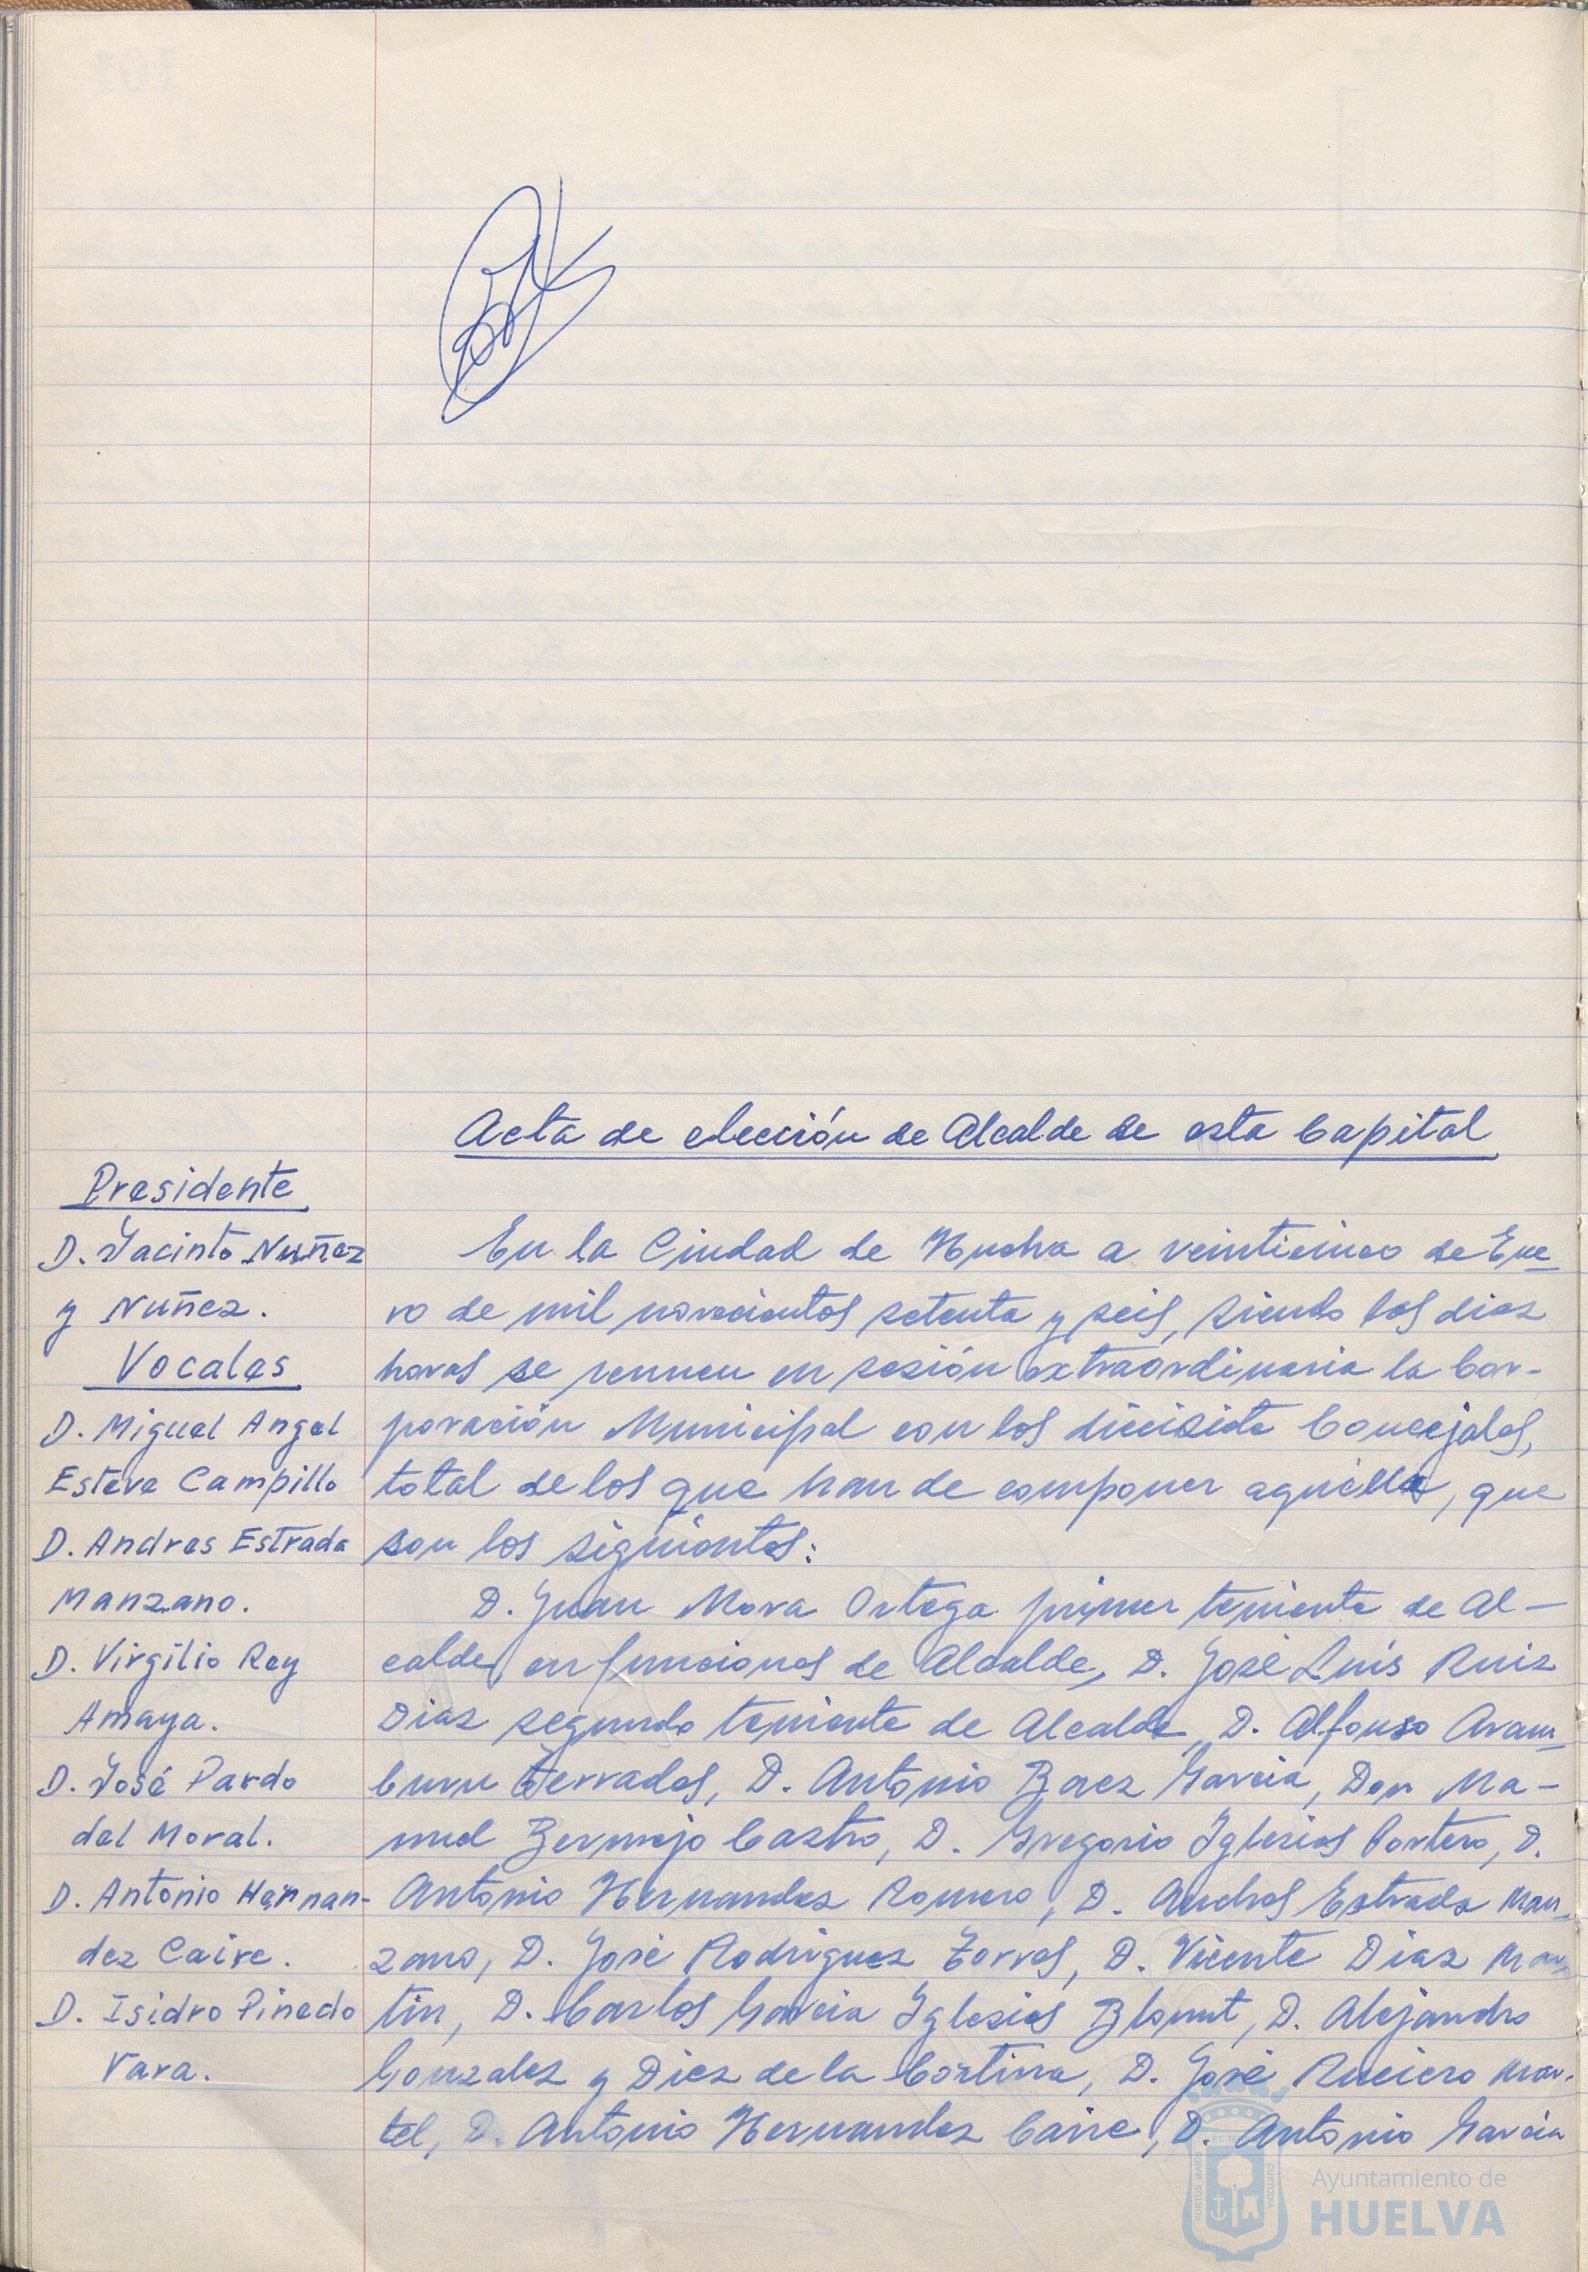 Acta de elección de Alcalde de esta Capital
Presidente
D. Jacinto Nuñez
y Nuñez.
Vocales
D. Miguel Angel
Esteve Campillo
D. Andres Estrada
Manzano.
D. Virgilio Rey
Amaya.
D. José Pardo
del Moral.
D. Antonio Hernan-
dez Caire.
D. Isidro Pinedo
Vara.
En la Ciudad de Huelva a veinticinco de Ene-
ro de mil novecientos setenta y seis, siendo las diez
horas se reunen en sesión extraordinaria la Cor-
poración Municipal con los diecisiete Concejales,
total de los que han de componer aquélla, que
son los siguientes:
D. Juan Mora Ortega primer teniente de Al-
calde, en funciones de Alcalde, D. José Luís Ruiz
Diaz segundo teniente de Alcalde, D. Alfonso Aram-
buru Terrades, D. Antonio Baez Garcia, Don Ma-
nuel Bermejo Castro, D. Gregorio Iglesias Portero, D.
Antonio Hernandez Romero, D. Andres Estrada Man-
zano, D. José Rodriguez Torres, D. Vicente Diaz Mar-
tin, D. Carlos Garcia Iglesias Blount, D. Alejandro
Gonzalez y Diez de la Cortina, D. José Ruciero Mar-
tel, D. Antonio Hernandez Caire, D. Antonio Garcia
PORTUS MARIS
CUSTODIA
Ayuntamiento de
HUELVA